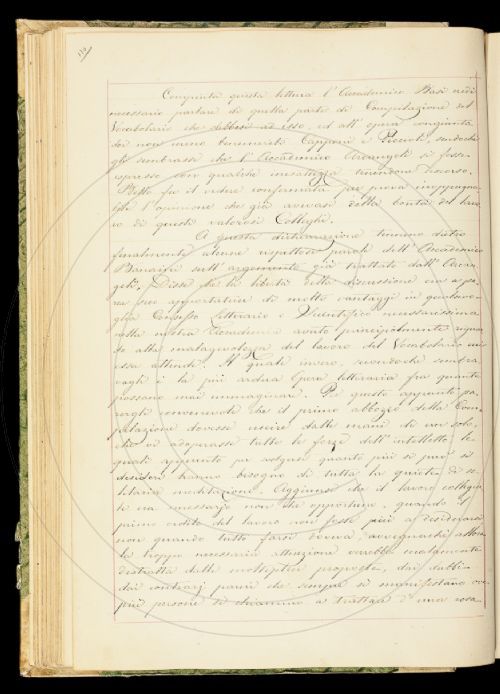 110
Compiuta questa lettura l'Accademico Basi credè
necessario parlare di quella parte di Compilazione del
Vocabolario che debbesi ad esso, ed all'opera congiunta
dei non meno benemeriti Capponi e Piccioli, sendochè
gli sembrasse che l'Accademico Arcangeli si fosse
espresso con qualche inesattezza tenendone discorso.
Detto fu il vedere confermata per prova
l'opinione che già avevasi della bontà del lavo-
ro di questi valorosi Colleghi.
A questa dichiarazione tennero dietro
finalmente alcune rispettose parole dell'Accademico
Banaini sull'argomento già trattato dall'Arcan-
geli. Disse che la libertà della discussione era a pa-
rer suo apportatrice di molto vantaggi in qualsivo-
glia Consesso letterario e Scientifico necessarissima
nella nostra Accademia avuto principalmente riguar-
do alla malagevolezza del lavoro del Vocabolario cui
essa attende. Il quale invero, secondochè sembra
vagli è la più ardua Opera letteraria fra quante
possano mai immaginarsi. Per questo appunto pa-
revagli convenevole che il primo abbozzo della Com-
pilazione dovesse uscire dalle mani di un solo,
che vi adoperasse tutte le forze dell'intelletto le
quali appunto per volgersi quanto più si può si
desideri hanno bisogno di tutta la quiete di so-
litaria meditazione. Aggiunse che il lavoro collegia-
le era messaggio non che opportuno, quando il
primo ordito del lavoro non fosse più a desiderarsi
non quando tutto farsi doveva, avvegnachè allora
la troppo necessaria attenzione verrebbe naturalmente
distratta dalle molteplici proposte, dai dubbi
dai contrarj pareri che sempre si manifestano ove
più persone si chiamino a trattare d'una cosa